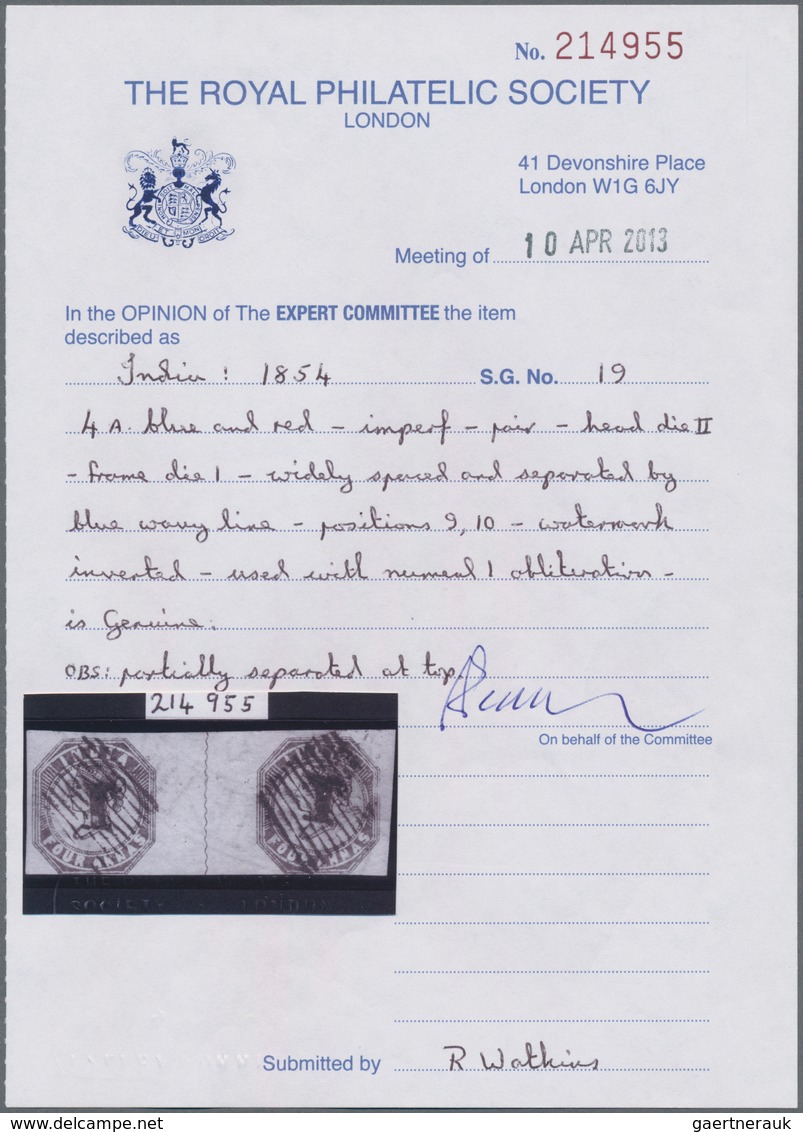 No. 214955
THE ROYAL PHILATELIC SOCIETY
LONDON
41 Devonshire Place
London W1G 6JY
Meeting of 10 APR 2013
In the OPINION of The EXPERT COMMITTEE the item
described as
India: 1854 S.G. No. 19
4 A. blue and red - imperf - pair - head die II
- frame die 1 - widely spaced and separated by
blue wavy line - positions 9, 10 - watermark
inverted - used with numeral 1 obliteration -
is Genuine.
OBS: partially separated at top.
214 955
On behalf of the Committee
INDIA
FOUR ANNAS
INDIA
FOUR ANNAS
SOCIETY LONDON
Submitted by R Watkins
gaertnerauk